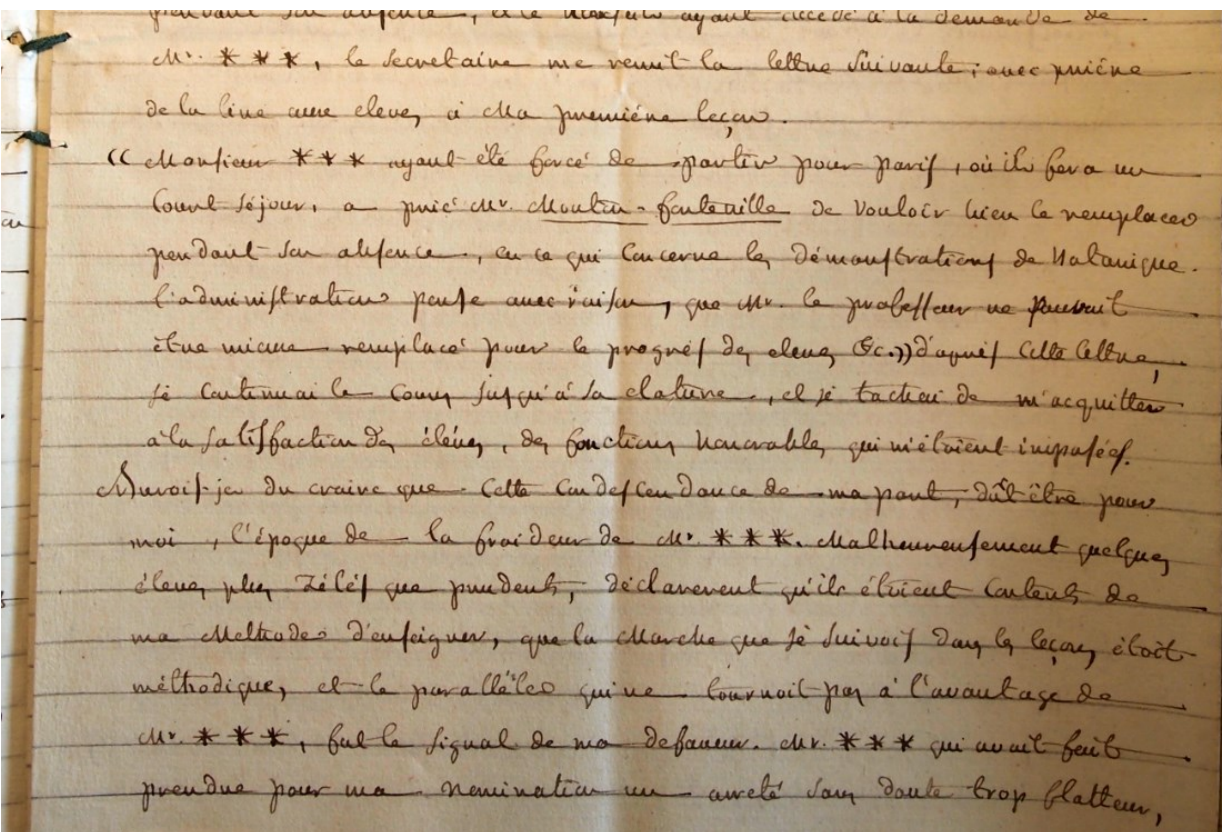 pendant son absence, et le ayant accédé à la demande de
Mr. ***, le secretaire me remit la lettre suivante; avec priére
de la lire aux eleves, à Ma premiére leçon.
(( Monsieur *** ayant été forcé de partir pour paris, où il fera un
Court séjour, a prié Mr. Mouton-fontenille de vouloir bien le remplacer
pendant son absence, en ce qui Concerne les démonstrations de Botanique.
l'administration pense avec raison, que Mr. le professeur ne pouvait
être mieux remplacé pour le progrés des eleves &c.)) d'aprés Cette lettre,
je Continuai le Cours jusqu'à sa cloture, et je tachai de m'acquitter
à la satisfaction des éléves, des fonctions honorables qui m'étoient imposées.
Aurois-je du croire que Cette Condescendance de ma part, dût être pour
moi, l'époque de la froideur de Mr. ***. Malheureusement quelques
éleves plus zélés que prudents, déclarerent qu'ils étoient Contents de
ma Methode d'enseigner, que la Marche que je suivois dans les leçons étoit
méthodique, et le paralléle qui ne tournoit pas à l'avantage de
Mr. ***, fut le signal de ma defaveur. Mr. *** qui avait fait
prendre pour ma nomination un arreté sans doute trop flatteur,